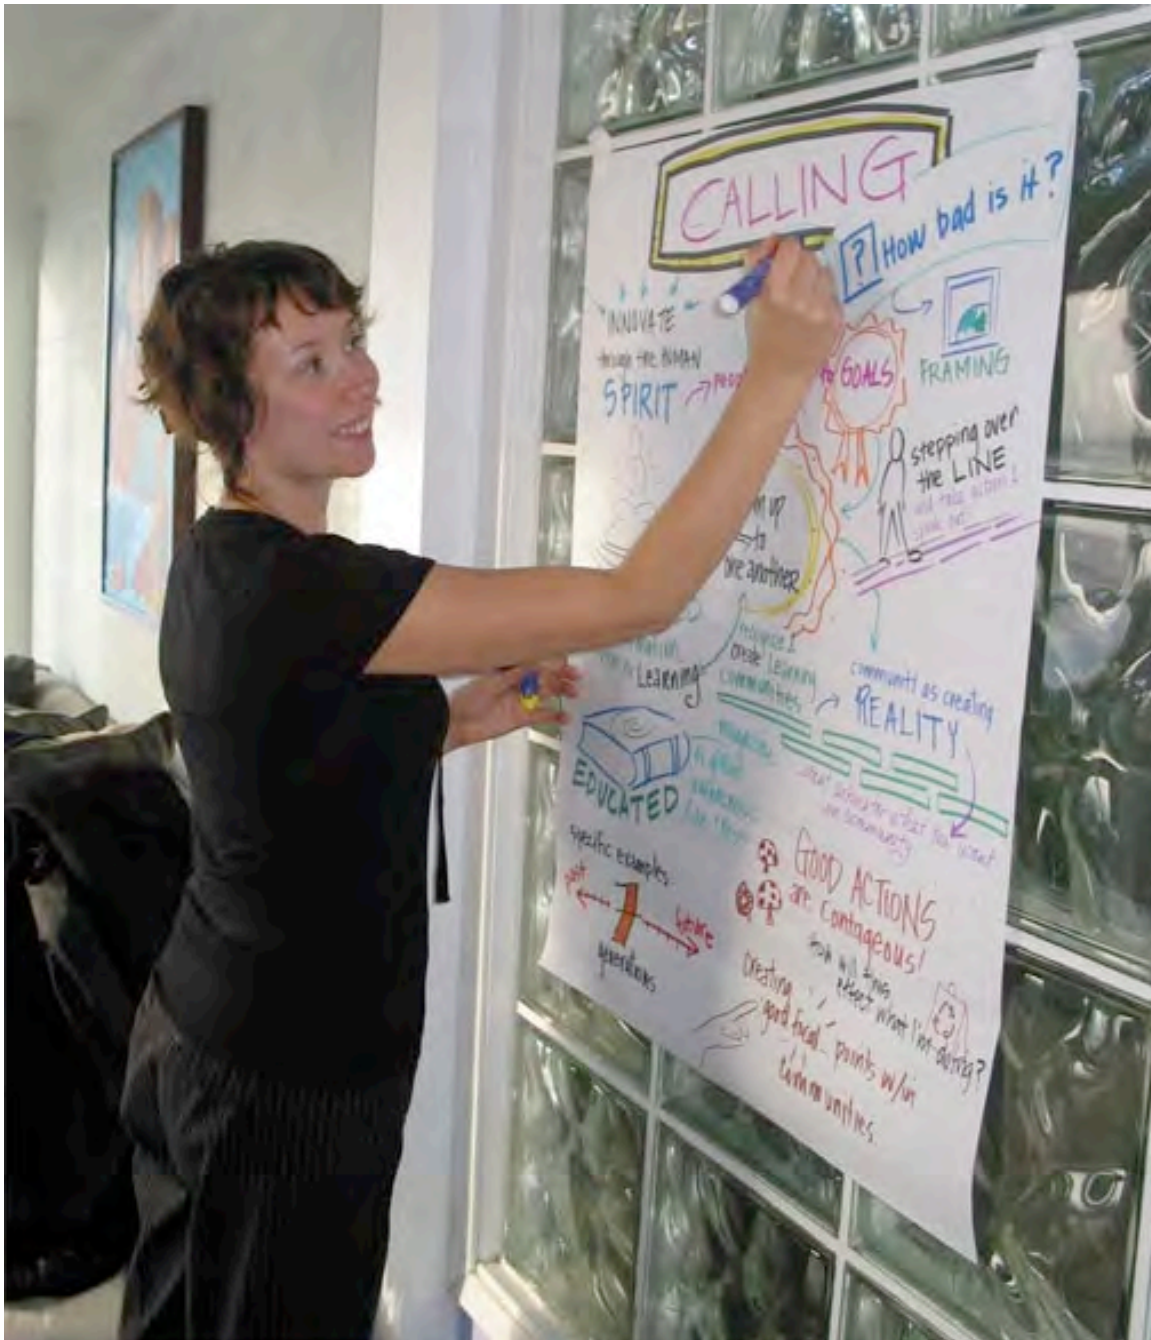 CALLING
? How bad is it?
INNOVATE
through the HUMAN
SPIRIT
to GOALS
FRAMING
stepping over
the LINE
and take action &
up
to
one another
Learning
create Learning
communities
community as creating
REALITY
EDUCATED
community
specific examples
past
future
generations
GOOD ACTIONS
are contageous!
how will this
effect what I'm doing?
creating
good focal points w/in
communities.